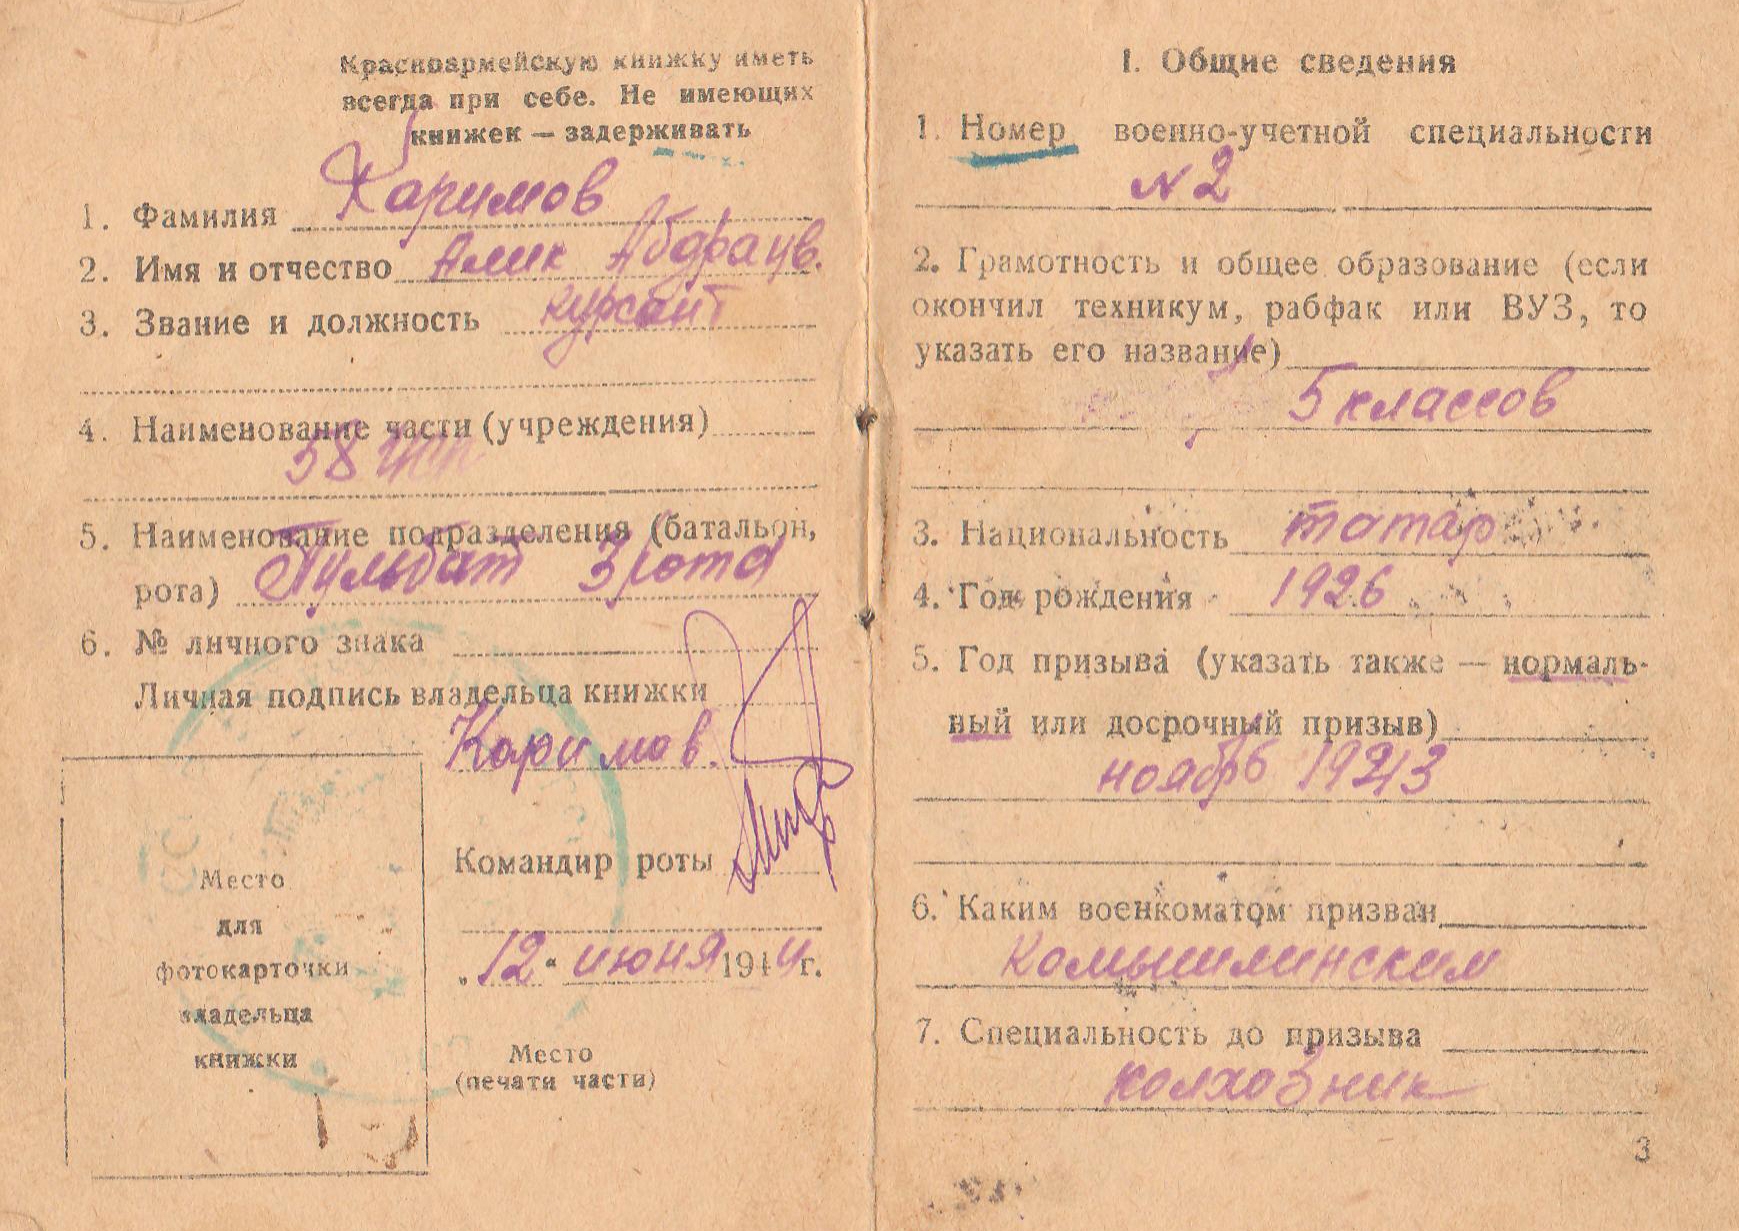 Красноармейскую книжку иметь
всегда при себе. Не имеющих
книжек — задерживать
1. Фамилия Каримов
2. Имя и отчество Алик Абдраув.
3. Звание и должность курсант
4. Наименование части (учреждения)
58
5. Наименование подразделения (батальон,
рота) Пульбат 3 рота
6. № личного знака
Личная подпись владельца книжки
Каримов.
Командир роты
„12“ июня 1944 г.
Место
для
фотокарточки
владельца
книжки
Место
(печати части)
I. Общие сведения
1. Номер военно-учетной специальности
№2
2. Грамотность и общее образование (если
окончил техникум, рабфак или ВУЗ, то
указать его название)
5 классов
3. Национальность татар
4. Год рождения 1926
5. Год призыва (указать также — нормаль-
ный или досрочный призыв)
ноябрь 1943
6. Каким военкоматом призван
Комышлинским
7. Специальность до призыва
колхозник
3